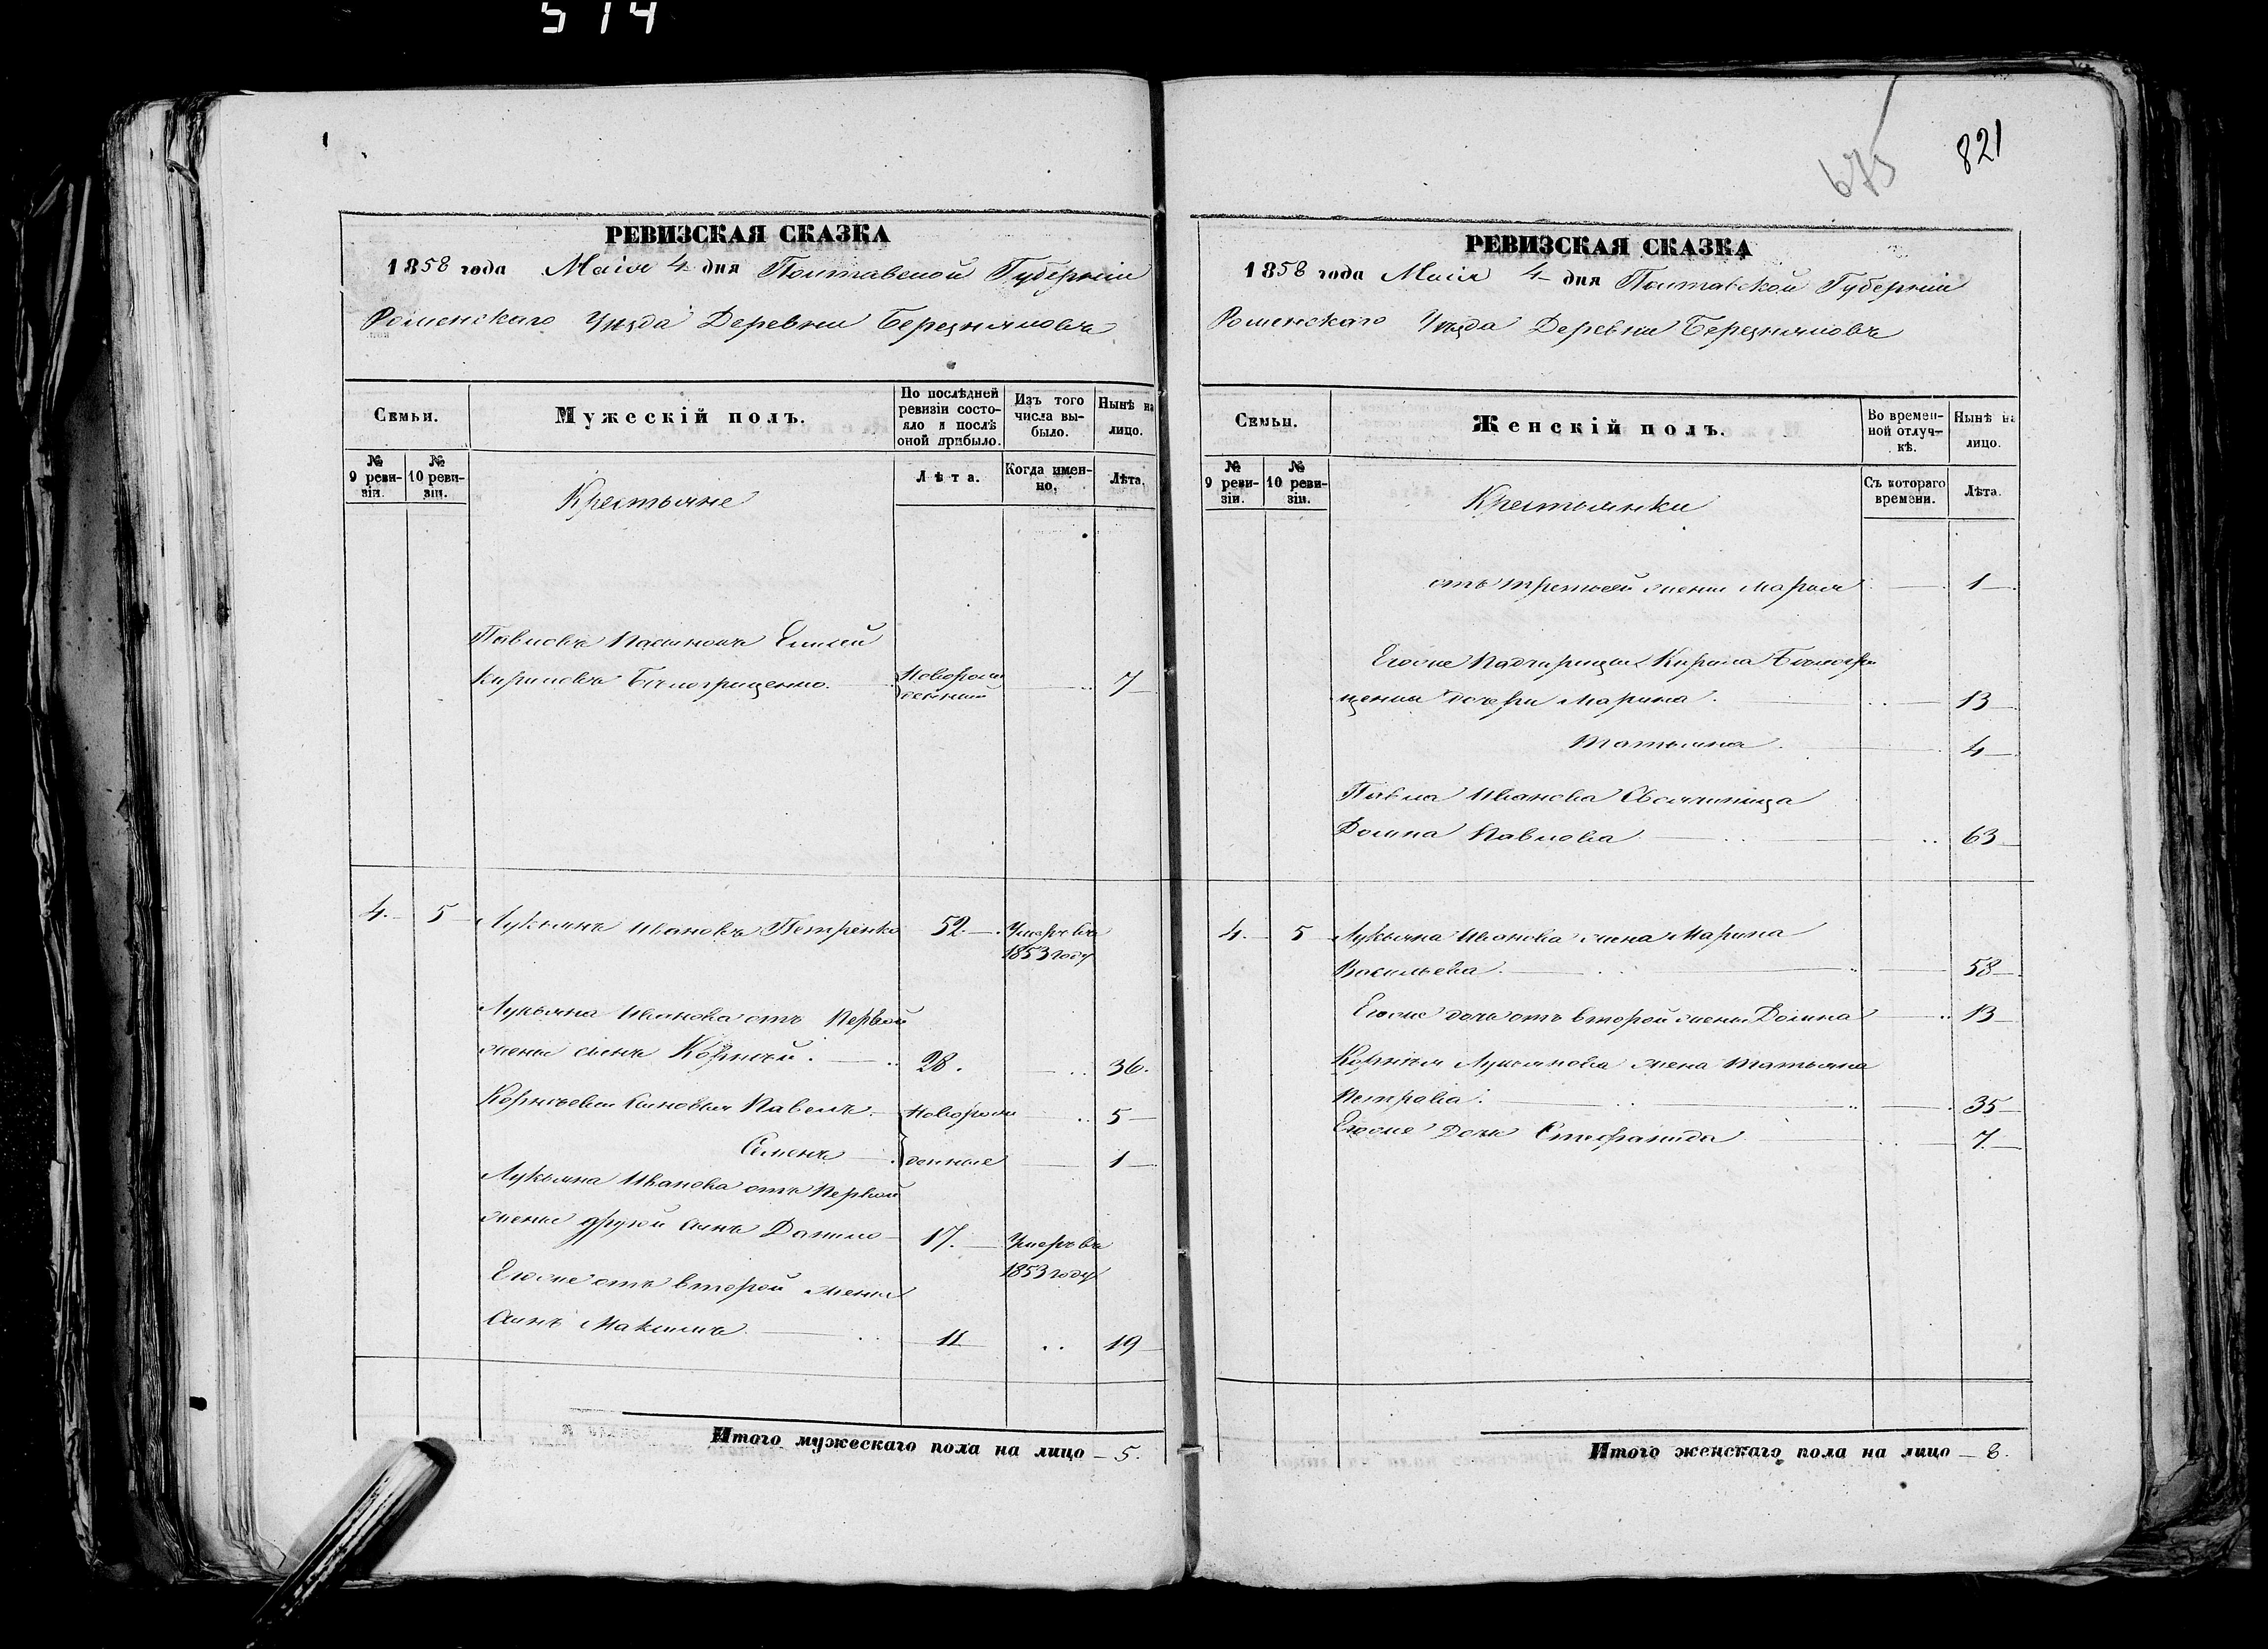 514
675
821
РЕВИЗСКАЯ СКАЗКА
1858 года Маія 4 дня Полтавской Губерніи
Роменскаго Уѣзда Деревни Березняковъ
Семьи.
Мужескій полъ.
По послѣдней ревизіи состояло и послѣ оной прибыло.
Изъ того числа выбыло.
Нынѣ на лицо.
№ 9 ревизіи.
№ 10 ревизіи.
Крестьяне
Лѣта.
Когда именно.
Лѣта.
Павловъ Елисей
Кириловъ Билогрищенко. Новорожденный 7
4. 5 Лукьянъ Ивановъ Петренко 52 Умеръ въ
1853 году
Лукьяна Иванова отъ первой
жены сынъ Корнѣй. 28. 36.
Корнѣевы сыновья Павелъ Новорож 5
Семенъ денные 1
Лукьяна Иванова отъ первой
жены другой сынъ Данило 17. Умеръ въ
1853 году
Егоже отъ второй жены
сынъ Максимъ 11 19
Итого мужескаго пола на лицо 5.
РЕВИЗСКАЯ СКАЗКА
1858 года Маія 4 дня Полтавской Губерніи
Роменскаго Уѣзда Деревни Березняковъ
Семьи.
Женскій полъ.
Во временной отлучкѣ.
Нынѣ на лицо.
№ 9 ревизіи.
№ 10 ревизіи.
Крестьянки
Съ котораго времени.
Лѣта.
отъ третьей жены Марья 1
Егоже Кирила Билогри
щенка дочери Марина 13
Татьяна 4
Павла Иванова
Домна Павлова 63
4. 5 Лукьяна Иванова жена Марина
Васильева 58
Егоже дочь отъ второй жены Домна 13
Корнѣя Лукьянова жена Татьяна
Петрова 35
Егоже Дочь Стефанида 7
Итого женскаго пола на лицо 8.